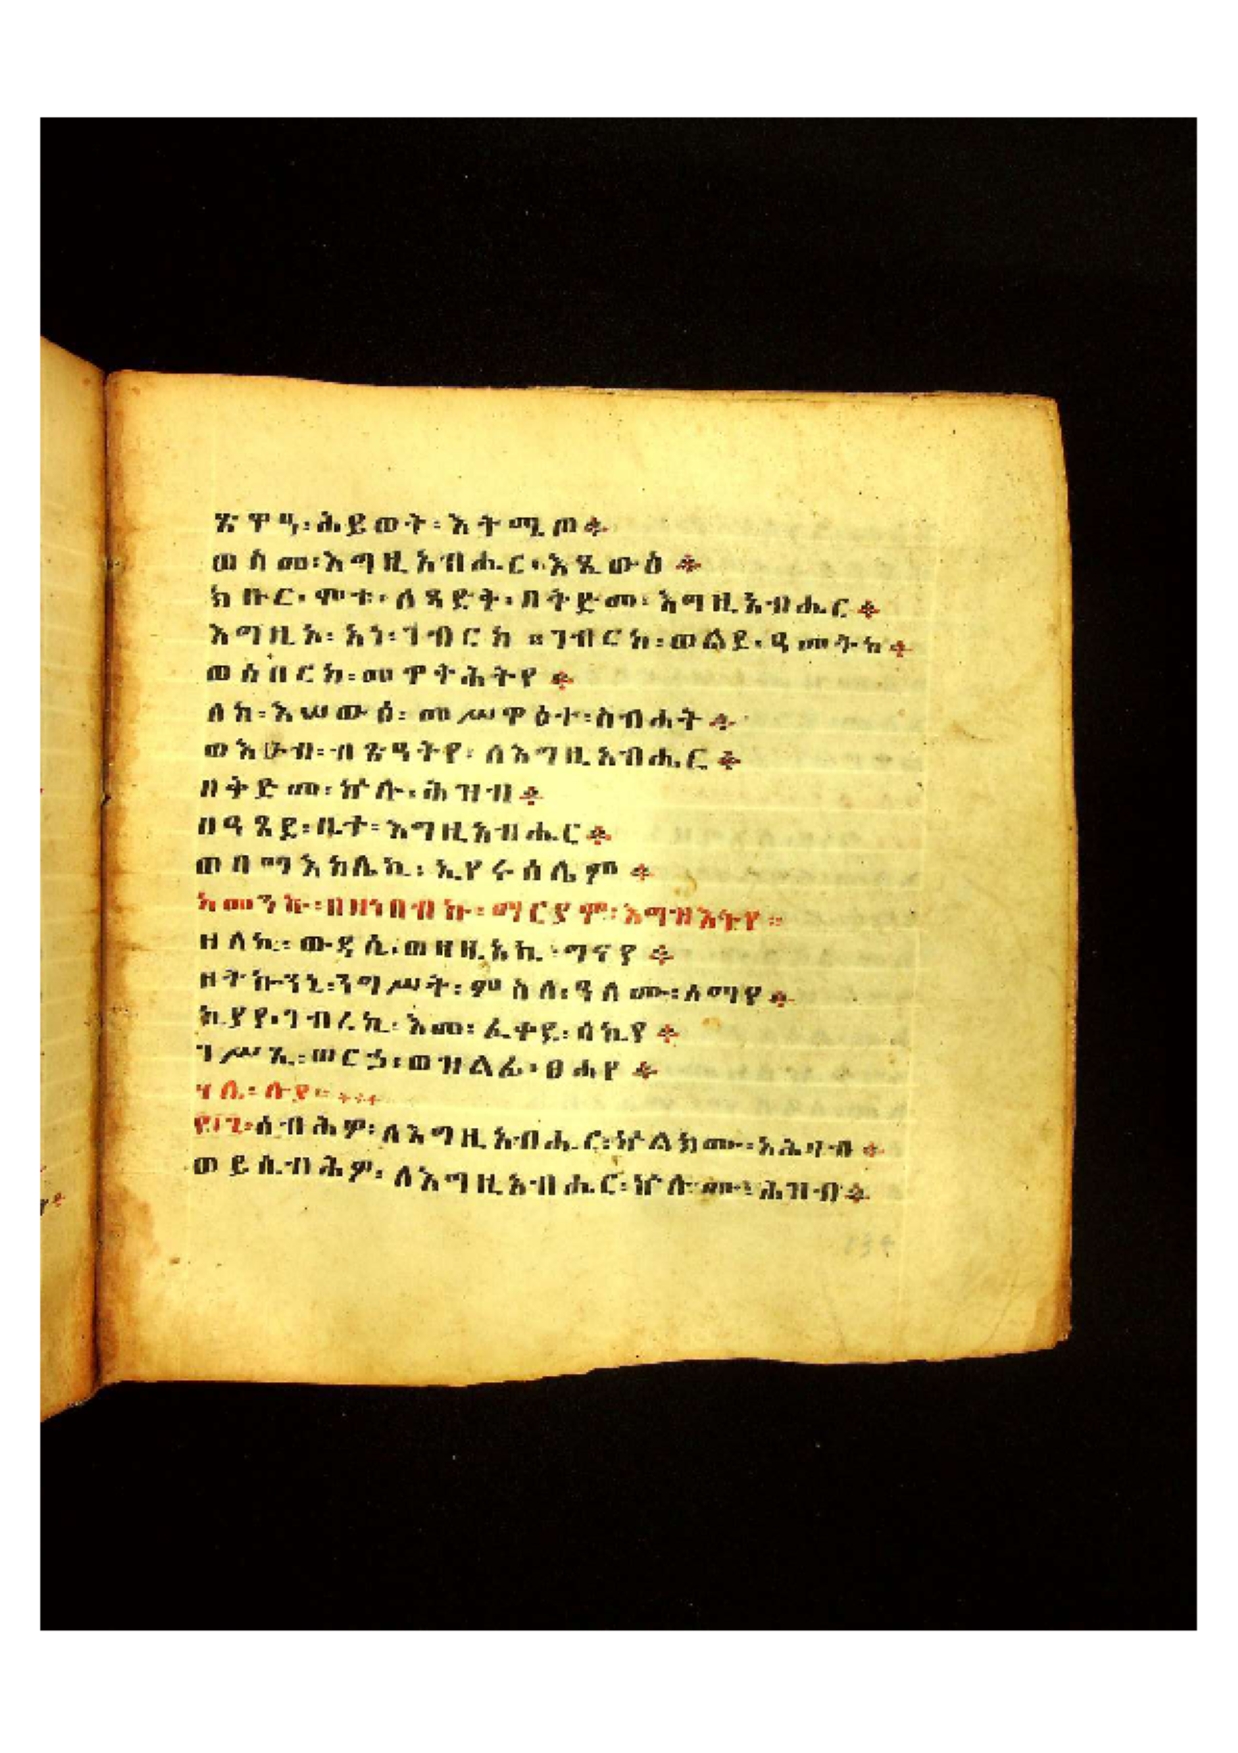 ጽዋዓ፡ ሕይወት፡ እትሜጦ፨
ወስመ፡ እግዚአብሔር፡ እጼውዕ፨
ክቡር፡ ሞቱ፡ ለጻድቅ፡ በቅድመ፡ እግዚአብሔር፨
እግዚኦ፡ አነ፡ ገብርከ ። ገብርከ፡ ወልደ፡ ዓመትከ፨
ወሰበርከ፡ መዋቅሕትየ፨
ለከ፡ እሠውዕ፡ መሥዋዕተ፡ ስብሐት፨
ወእሁብ፡ ብጽዓትየ፡ ለእግዚአብሔር፨
በቅድመ፡ ኵሉ፡ ሕዝብ፨
በዓጸደ፡ ቤተ፡ እግዚአብሔር፨
ወበማእከሌኪ፡ ኢየሩሰሌም፨
አመንኩ፡ በዘነበብኩ፡ ማርያም፡ እግዝእትየ።
ዘለኪ፡ ውዳሴ፡ ወዛዚአኪ፡ ማናየ፨
ዘትኴንኒ፡ ንግሥት፡ ምስለ፡ ዓለሙ፡ ለማየ፨
ኪያየ፡ ገብረኪ፡ እመ፡ ፈቀደ፡ ሰኪየ፨
ገሥጺ፡ ወርኃ፡ ወዝልፊ፡ ፀሐየ፨
ሃሌ፡ ሉያ።
ሰብሕዎ፡ ለእግዚአብሔር፡ ኵልክሙ፡ አሕዛብ፨
ወይሴብሕዎ፡ ለእግዚአብሔር፡ ኵሎሙ፡ ሕዝብ፨